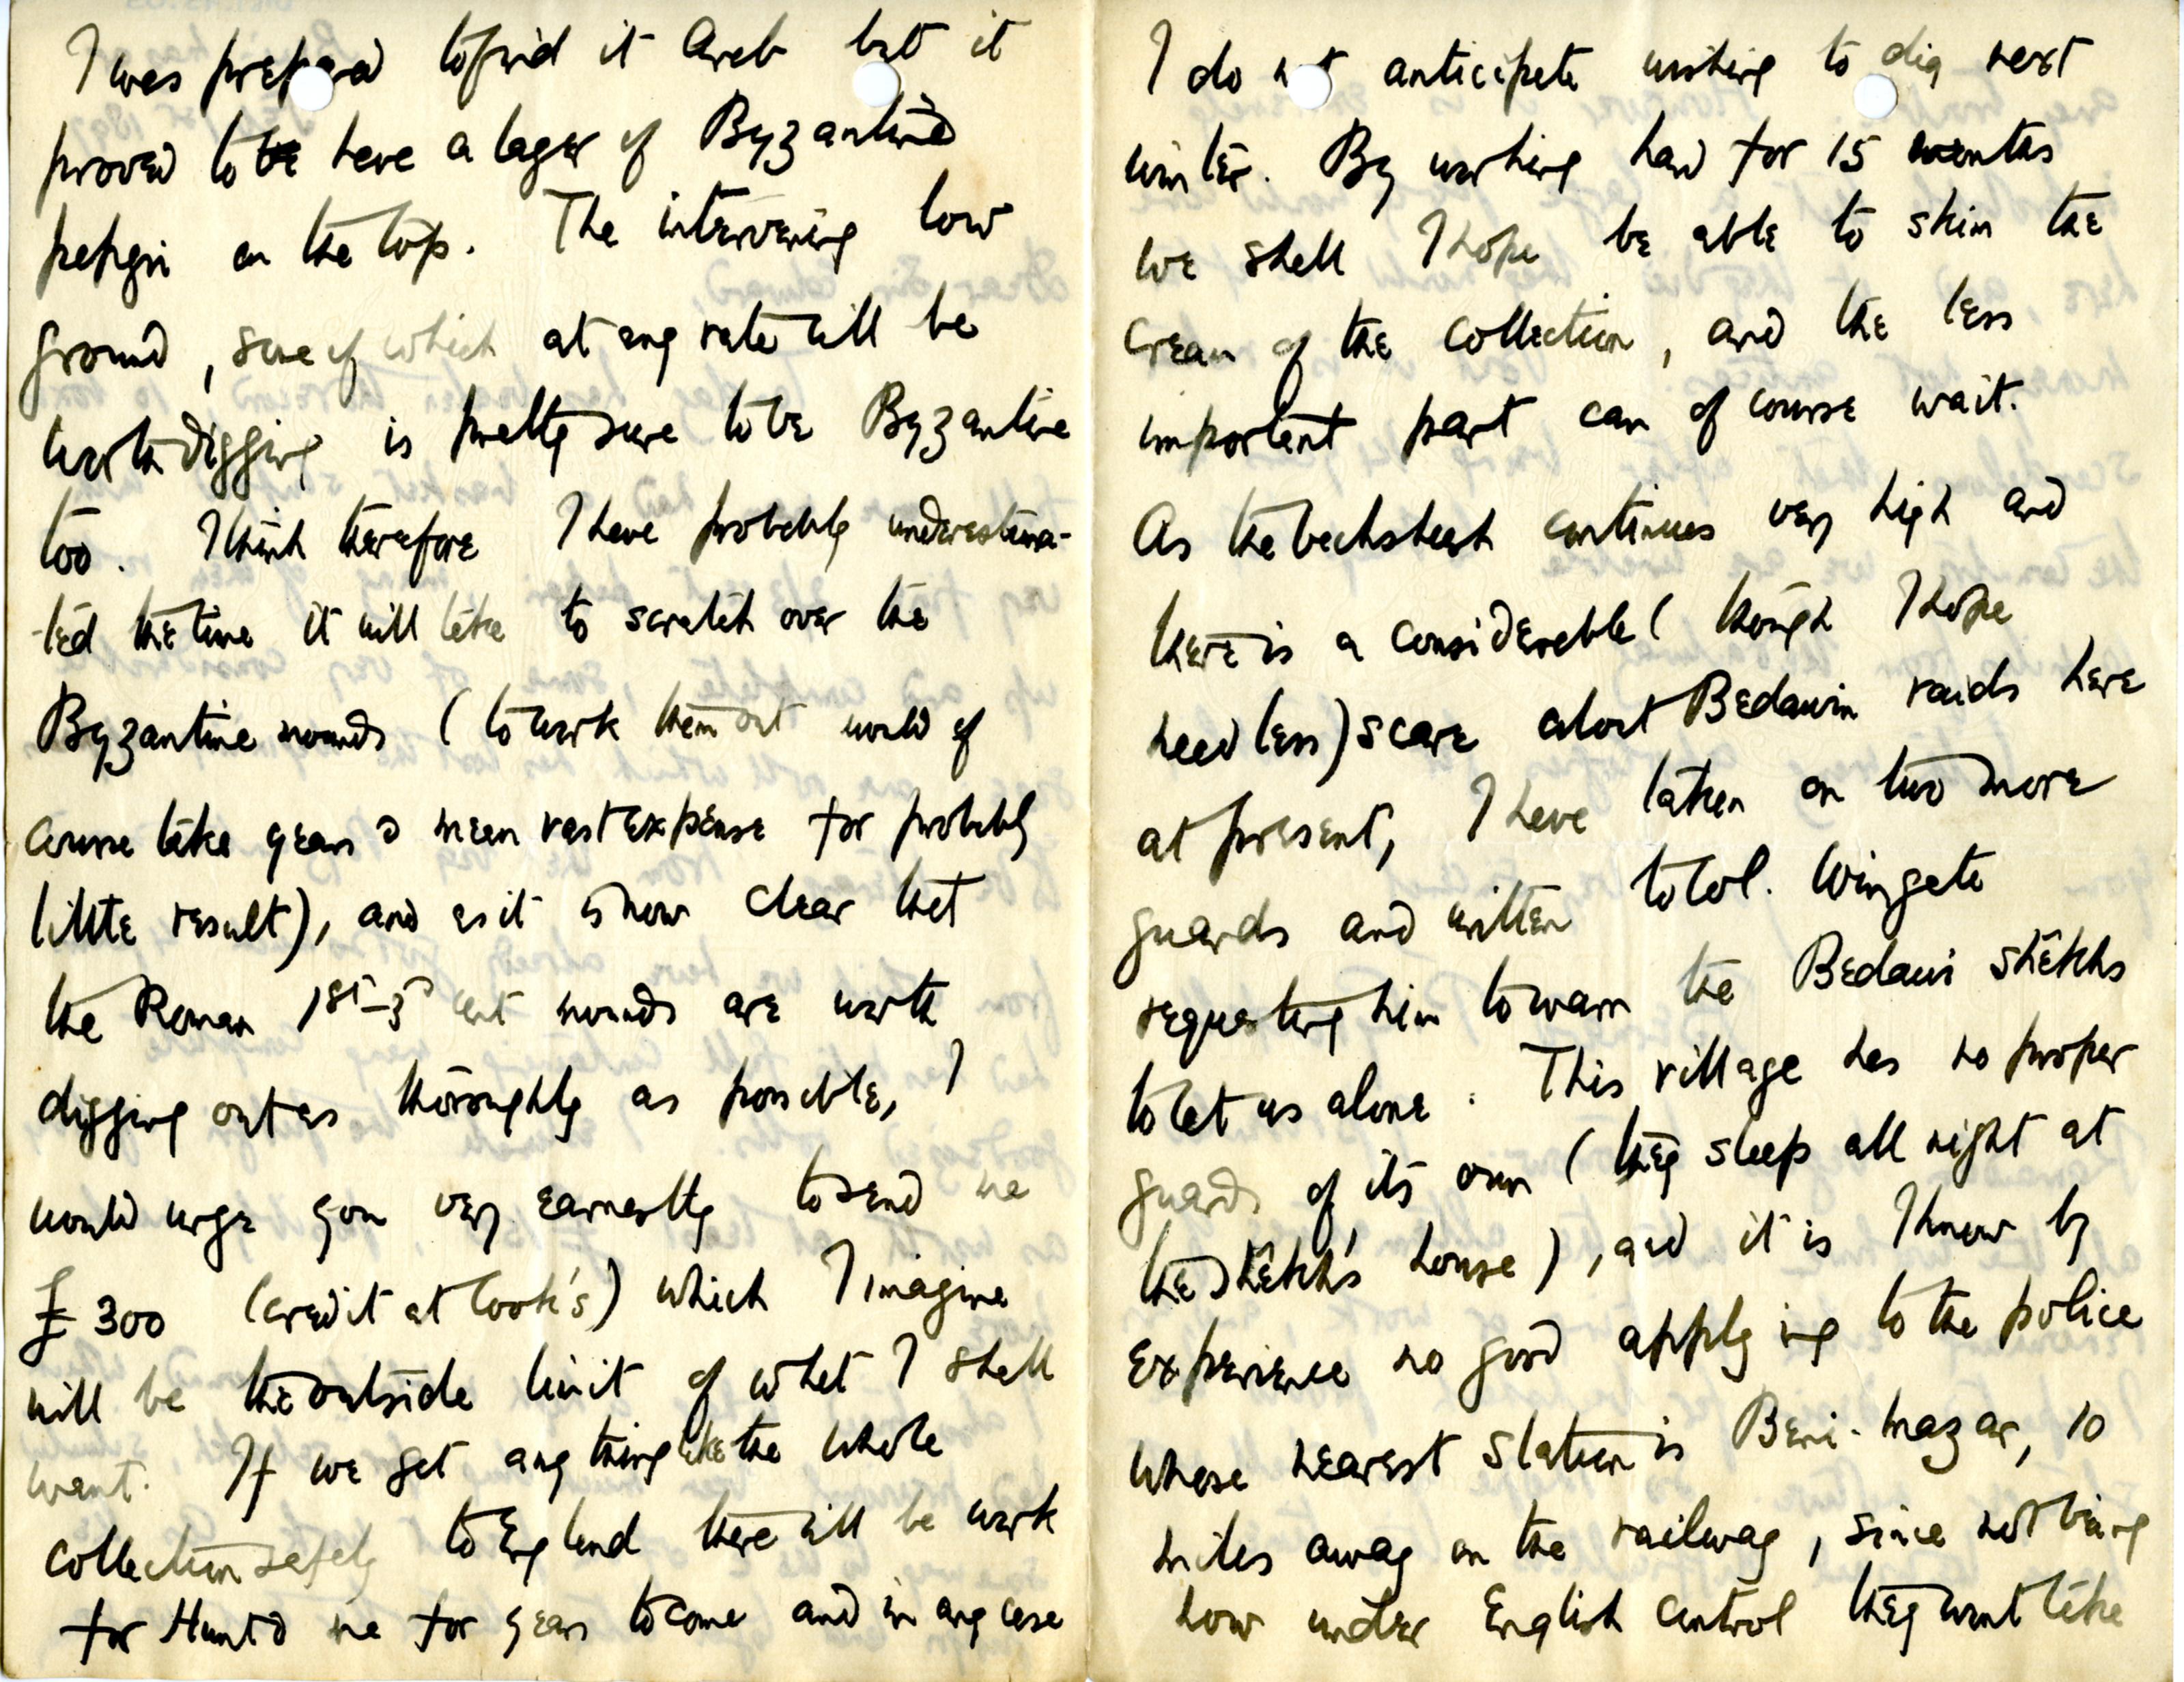 I was prepared to find it Arab but it
proved to be have a layer of Byzantine
papyri on the top. The intervening low
ground, some of which at any rate will be
worth digging is pretty sure to be Byzantine
too. I think therefore I have probably underestima-
-ted the time it will take to scratch over the
Byzantine mounds (to work them out would of
course take years & mean vast expense for probably
little result), and as it is now clear that
the Roman 1st-3d cent mounds are worth
digging out as thoroughly as possible, I
would urge you very earnestly to send me
£300 (credit at Cook's) which I imagine
will be the outside limit of what I shall
want. If we get anything like the whole
collection safely to England there will be work
for Hunt & me for years to come and in any case
I do not anticipate wishing to dig next
winter. By working hard for 15 months
we shall I hope be able to skim the
cream of the collection, and the less
important part can of course wait.
As the bachsheesh continues very high and
there is a considerable (though I hope
needless) scare about Bedawin raids here
at present, I have taken on two more
guards and written to Col. Wingate
requesting him to warn the Bedawi shêkhs
to let us alone. This village has no proper
guards of its own (they sleep all night at
the shêkh's house), and it is I know by
experience no good applying to the police
whose nearest station is Beni-mazar, 10
miles away on the railway, since not being
now under English control they wont take